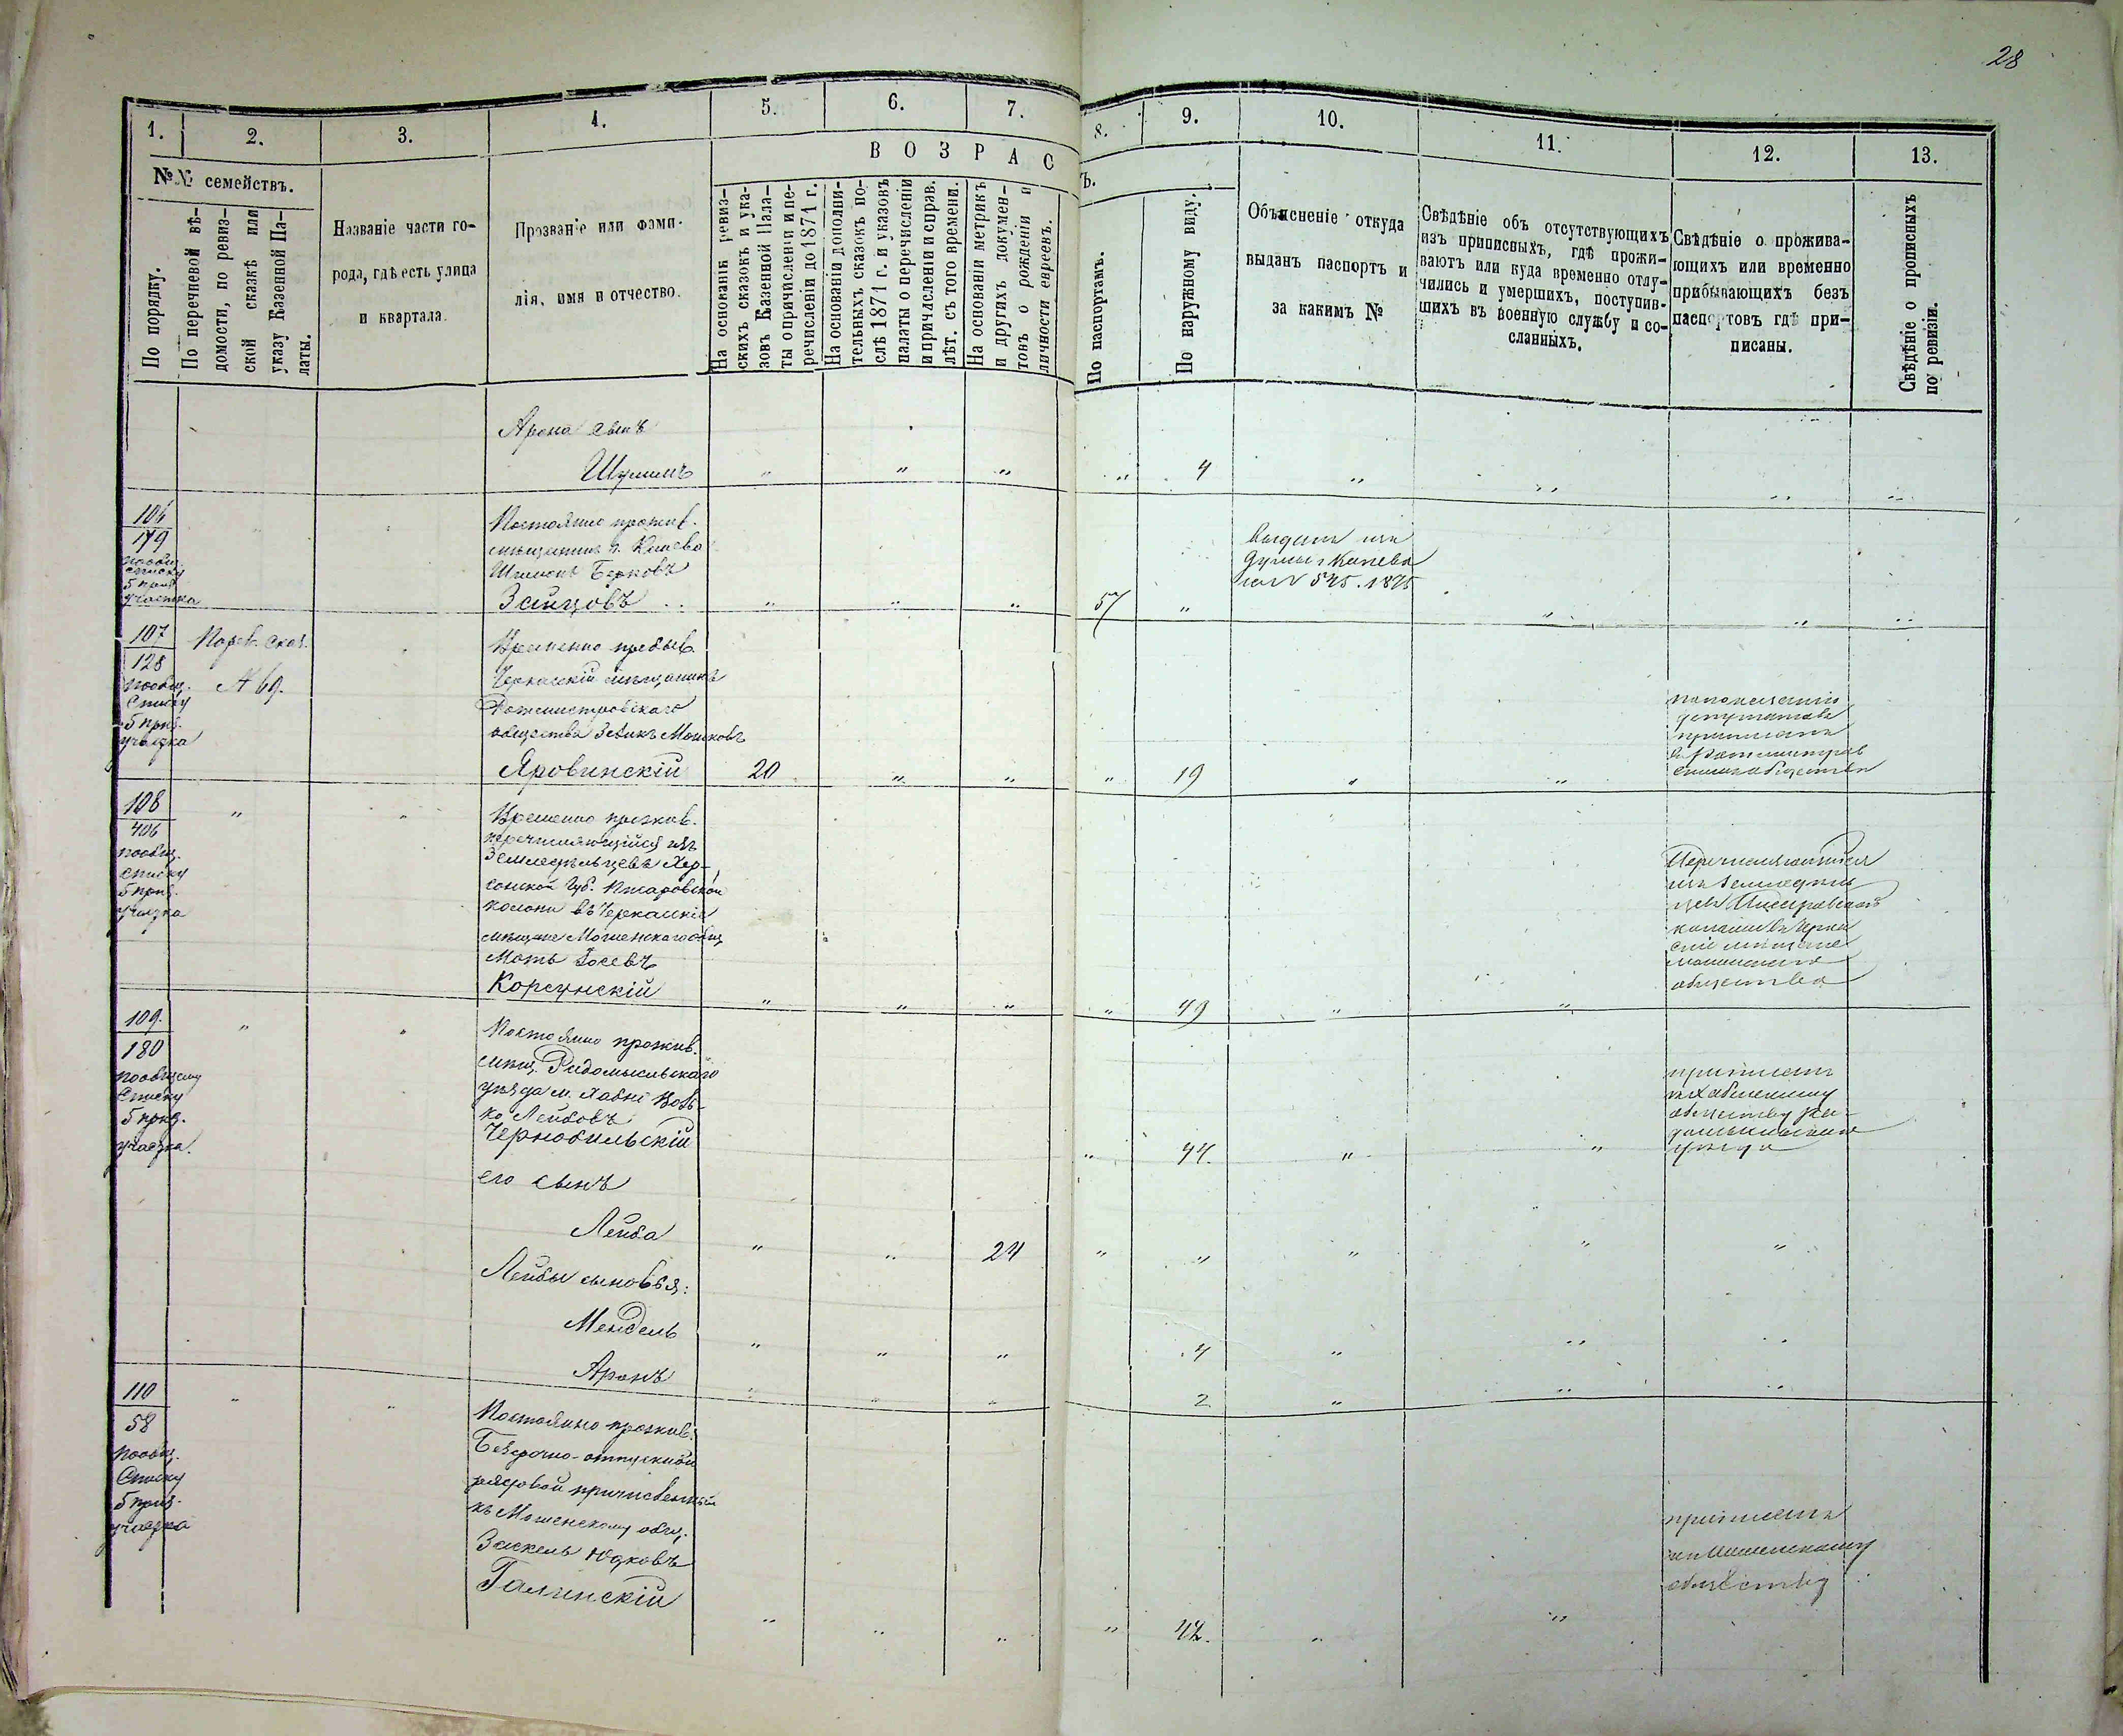 28
1.
2.
3.
4.
5.
6.
7.
8.
9.
10.
11.
12.
13.
№№ семействъ.
По порядку.
По перечневой вѣ-
домости, по ревиз-
ской сказкѣ или
указу Казенной Па-
латы.
Названіе части го-
рода, гдѣ есть улица
и квартала.
Прозваніе или фами-
лія, имя и отчество.
ВОЗРАС
Ъ.
На основаніи ревиз-
скихъ сказокъ и ука-
зовъ Казенной Пала-
ты о причисленіи и пе-
речисленіи до 1871 г.
На основаніи дополни-
тельныхъ сказокъ по-
слѣ 1871 г. и указовъ
палаты о перечисленіи
и причисленіи и справ.
лѣт. съ того времени.
На основаніи метрикъ
и другихъ докумен-
товъ о рожденіи и
личности евреевъ.
По паспортамъ.
По наружному виду.
Объясненіе откуда
выданъ паспортъ и
за какимъ №
Свѣдѣніе объ отсутствующихъ
изъ приписныхъ, гдѣ прожи-
ваютъ или куда временно отлу-
чились и умершихъ, поступив-
шихъ въ военную службу и со-
сланныхъ.
Свѣдѣніе о прожива-
ющихъ или временно
прибывающихъ безъ
паспортовъ гдѣ при-
писаны.
Свѣдѣніе о прописныхъ
по ревизіи.
Арона сынъ
Шулимъ " " " " 4 " " " "
106
179
пообщ.
списку
5 приз.
участка
Постоянно прожив.
мещанинъ г. Канева
Шимонъ Берковъ
Зайцовъ " " " 57 " " " "
Выданъ изъ
Думы г Канева
за № 545. 1875
107
128
пообщ.
Списку
5 приз.
участка
Ревиз. Сказ.
№ 69.
Временно пребыв.
Черкасскій мѣщанинъ
Ротмистровскаго
общества Зейликъ Мошковъ
Яровинскій 20 " " " 19 " "
депутатовъ
приписанъ
въ Ротмистров
скомъ обществѣ
108
406
пообщ.
списку
5 приз.
участка
" "
Временно прожив.
перечисляющійся изъ
Земледѣльцевъ Хер-
сонской Губ.
колоніи въ Черкасскіе
мѣщане Мошенскаго общ.
Мотъ Іосевъ
Корсунскій " " " " 49 " "
Перечисляющійся
изъ Земледѣль
цевъ
колоніи въ Черкас
скіе мѣщане
Мошенскаго
общества
109.
180
пообщему
Списку
5 приз.
участка.
" "
Постоянно прожив.
мѣщ. Радомысльскаго
уѣзда м. Хабне Вовь-
ко Лейбовъ
Чернобильскій " 44. " "
приписанъ
къ Хабенскому
обществу Ра-
домысльскаго
уѣзда
его сынъ
Лейба " " 24 " " " " "
Лейбы сыновья:
Мендель " " " 4 " " "
Аронъ " " " 2 " " "
110
58
пообщ.
Списку
5 приз.
участка
" "
Постоянно прожив.
Безсрочно-отпускной
рядовой причисленный
къ Мошенскому общ.
Хаскель Юдковъ
Галинскій " " " " 42. " "
приписанъ
къ Мошенскому
обществу